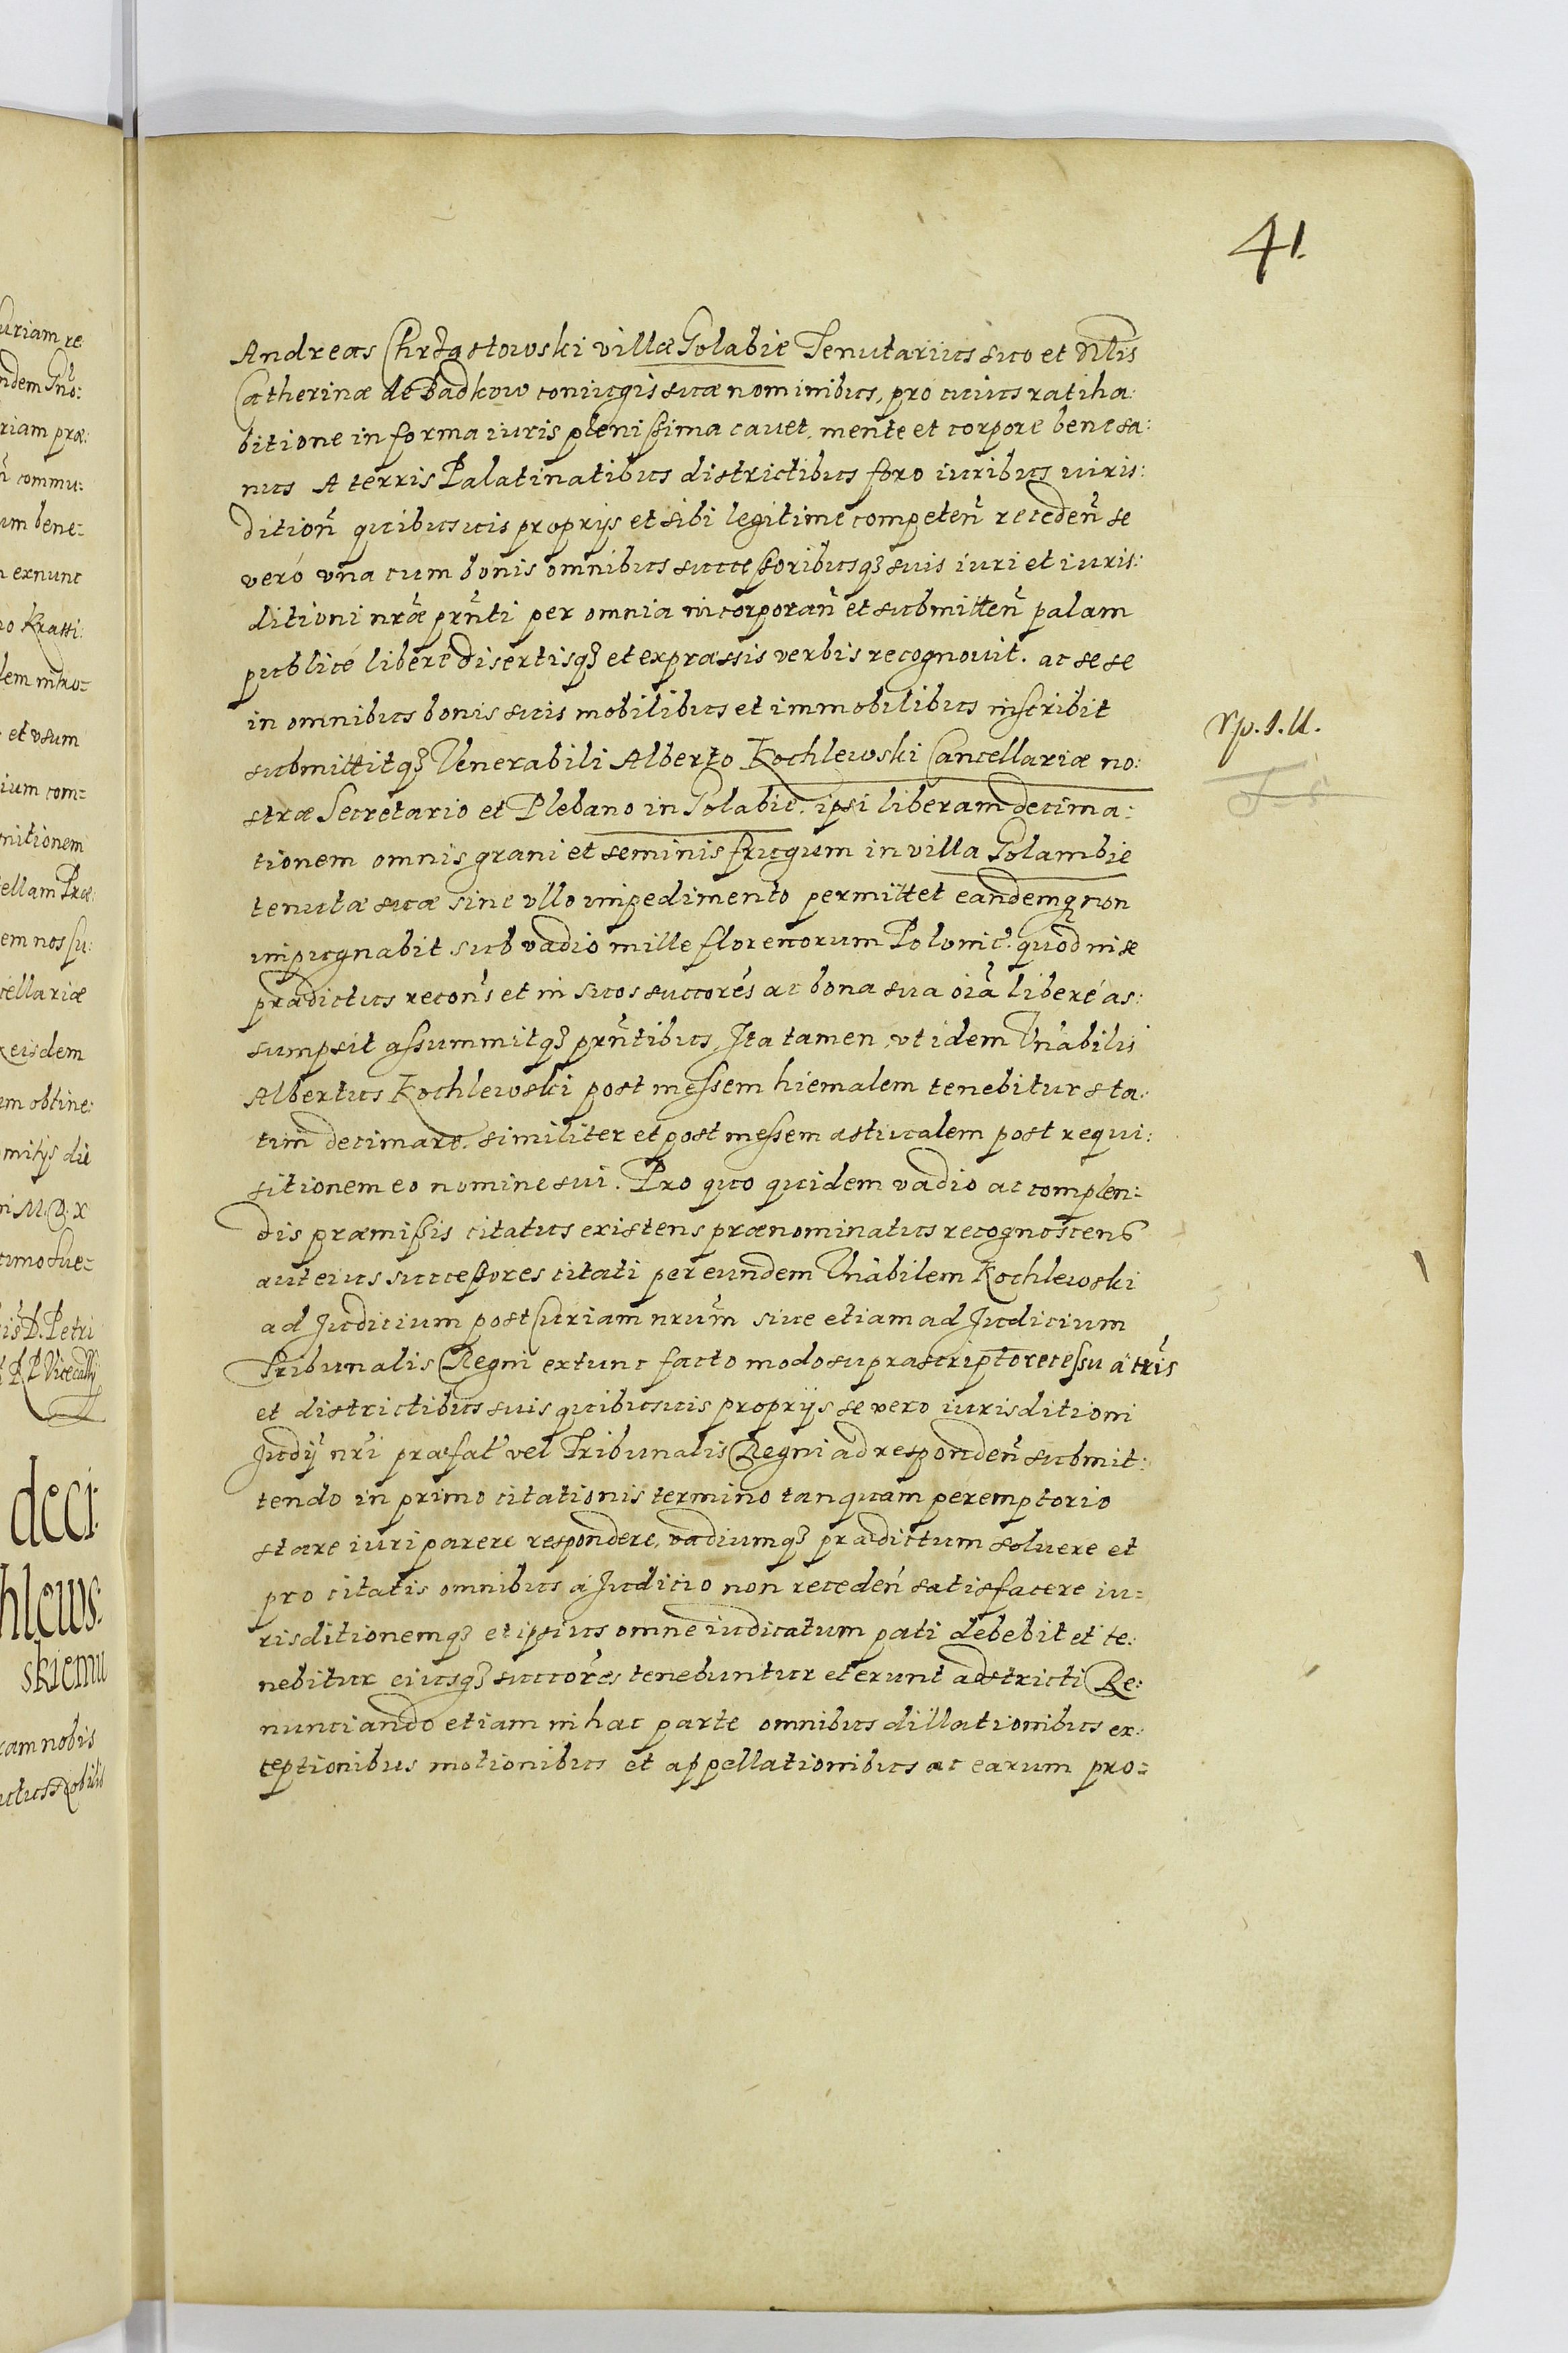 41.
Andreas Chrząstowski villæ Golabie Tenutarius suo et Nlis
Catherinæ de Badkow coniugis suæ nominibus, pro cuius ratiha:
bitione in forma iuris plenißima cauet, mente et corpore bene sa:
nus A terris Palatinatibus districtibus foro iuribus iuris:
dition̄ quibusuis proprijs et sibi legitime competen̄ receden̄ se
veró vna cum bonis omnibus succeßoribusqꝫ suis iuri et iuris:
ditioni nr̄æ prn̄ti per omnia incorporan̄ et submitten̄ palam
publicé liberé disertisqꝫ et expræssis verbis recognouit. ac sese
in omnibus bonis suis mobilibus et immobilibus inscribit
submittitqꝫ Venerabili Alberto Kochlewski Cancellariæ no:
stræ Secretario et Plebano in Golabie. ipsi liberam decima:
tionem omnis grani et seminis frugum in villa Golambie
tenutæ suæ sine vllo impedimento permittet eandemqꝫ non
impugnabit sub vadio mille florenorum Polonic. quod in se
prædictus recon̄s et in suos succorēs ac bona sua oīa liberé as:
sumpsit assummitqꝫ prn̄tibus, Ita tamen, vt idem Vnābilis
Albertus Kochlewski post messem hiemalem tenebitur sta:
tim decimare. similiter et post messem æstiualem post requi:
sitionem eo nomine sui. Pro quo quidem vadio ac complen:
dis præmißis citatus existens prænominatus recognoscens
aut eius succeßores citati per eundem Vnābilem Kochlewski
ad Judicium post Curiam nrūm siue etiam ad Judicium
Tribunalis Regni extunc facto modo suprascripto recessu a trīs
et districtibus suis quibusuis proprijs se vero iurisditioni
Judij nrī præfat' vel Tribunalis Regni ad responden̄ submit:
tendo in primo citationis termino tanquam peremptorio
stare iuri parere respondere, vadiumqꝫ prædictum soluere et
pro citatis omnibus a Juditio non receden̄ satisfacere iu:
risditionemqꝫ et ipsius omne iudicatum pati debebit et te:
nebitur eiusqꝫ succorēs tenebuntur et erunt adstricti Re:
nunciando etiam in hac parte omnibus dillationibus ex:
ceptionibus motionibus et appellationibus ac earum pro:
deci:
hlews:
skiemu